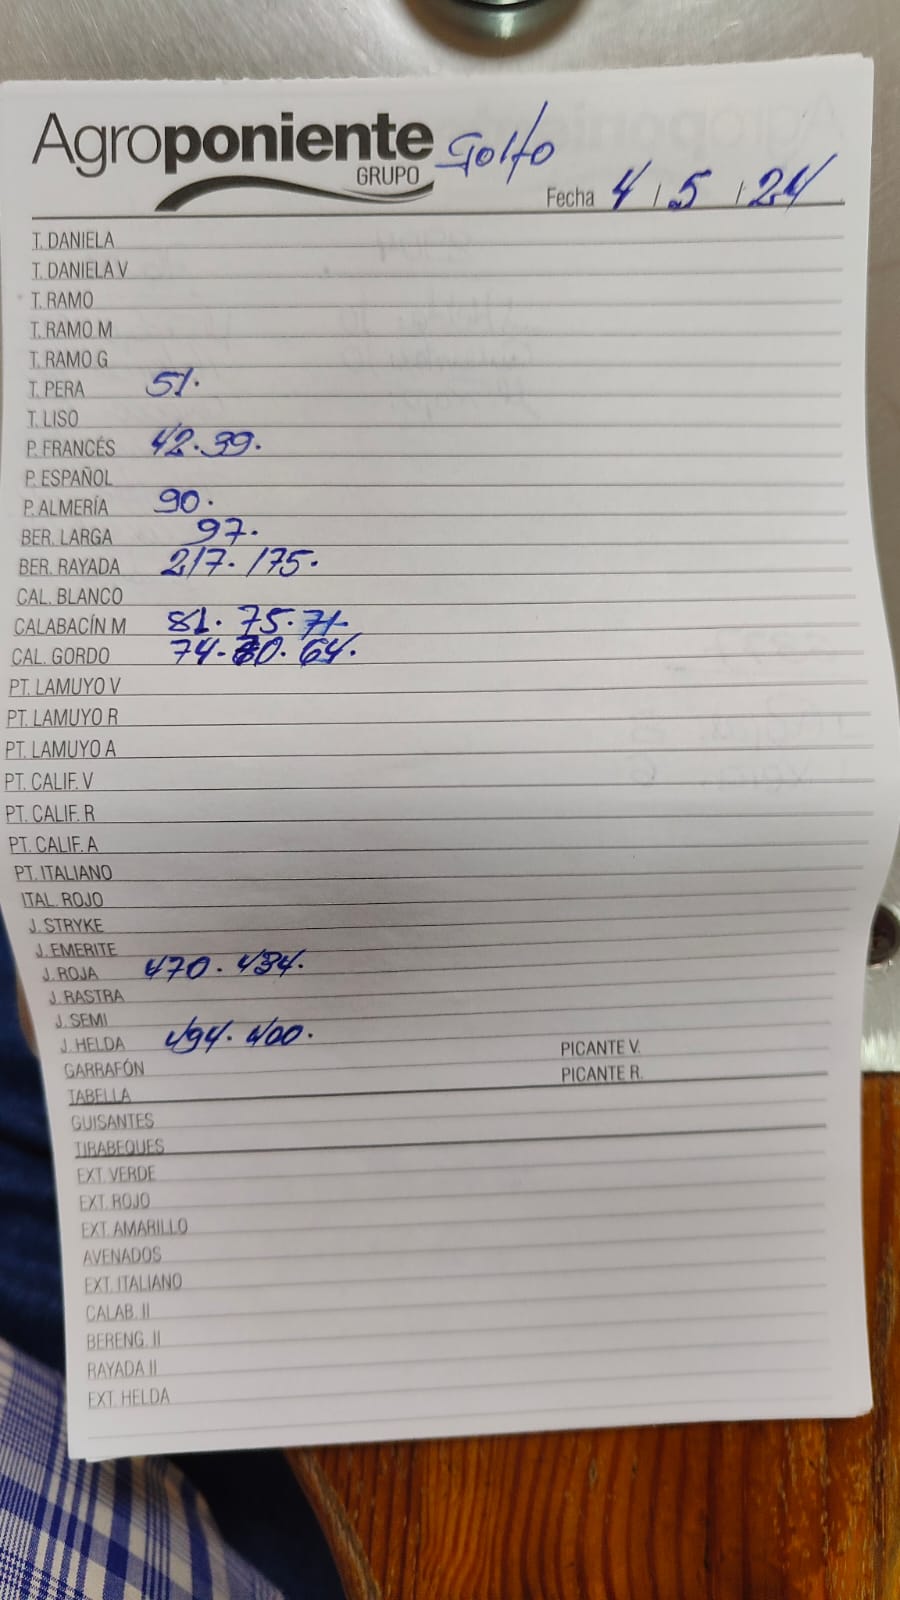 Agroponiente Golfo
GRUPO
Fecha 4 / 5 / 24
T. DANIELA
T. DANIELA V
T. RAMO
T. RAMO M
T. RAMO G
T. PERA 51.
T. LISO
P. FRANCÉS 42. 39.
P. ESPAÑOL
P. ALMERÍA 90.
BER. LARGA 97.
BER. RAYADA 217. 175.
CAL. BLANCO
CALABACÍN M 81. 75. 71.
CAL. GORDO 74. 64.
PT. LAMUYO V
PT. LAMUYO R
PT. LAMUYO A
PT. CALIF. V
PT. CALIF. R
PT. CALIF. A
PT. ITALIANO
ITAL. ROJO
J. STRYKE
J. EMERITE
J. ROJA 470. 434.
J. RASTRA
J. SEMI
J. HELDA 494. 400.
PICANTE V.
GARRAFÓN
PICANTE R.
TABELLA
GUISANTES
TIRABEQUES
EXT. VERDE
EXT. ROJO
EXT. AMARILLO
AVENADOS
EXT. ITALIANO
CALAB. II
BERENG. II
RAYADA II
EXT. HELDA